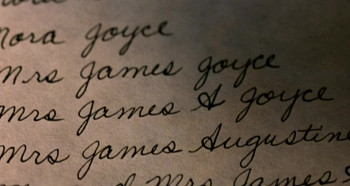 Nora Joyce
Mrs James Joyce
Mrs James A Joyce
Mrs James Augustine
Mrs James